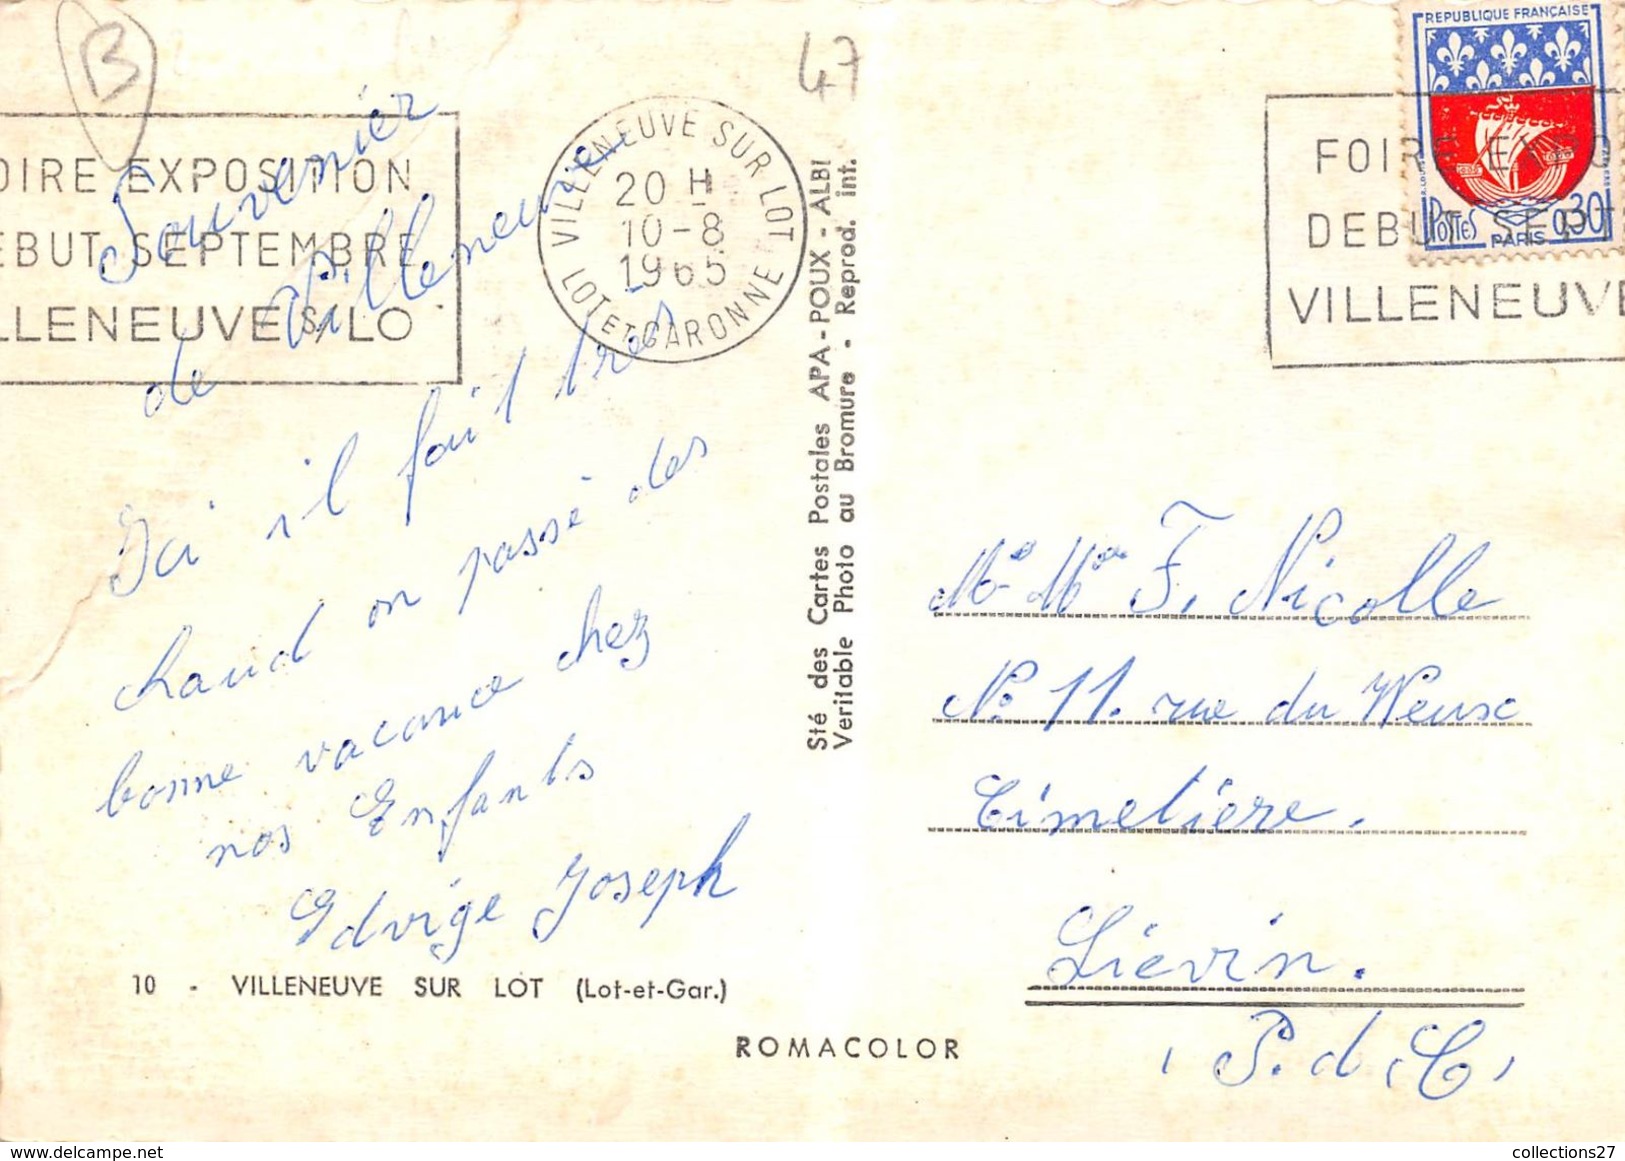 B
47
OIRE EXPOSITION
EBUT SEPTEMBRE
LLENEUVE S/LO
VILLENEUVE SUR LOT
20 H
10-8
1965
LOT ET GARONNE
FOIRE EXPO
DEBUT SEPTE
VILLENEUVE
REPUBLIQUE FRANÇAISE
POSTES
PARIS
0,30
Souvenier
de Villeneuve
Ici il fait très
chaud on passé des
bonne vacance chez
nos Enfants
Edvige Joseph
10 - VILLENEUVE SUR LOT (Lot-et-Gar.)
ROMACOLOR
Sté des Cartes Postales APA-POUX - ALBI
Veritable Photo au Bromure - Reprod. int.
Mr Mme F. Nicolle
No 11. rue du Weux
Cimetiere.
Liévin.
(P. d C)
collections27